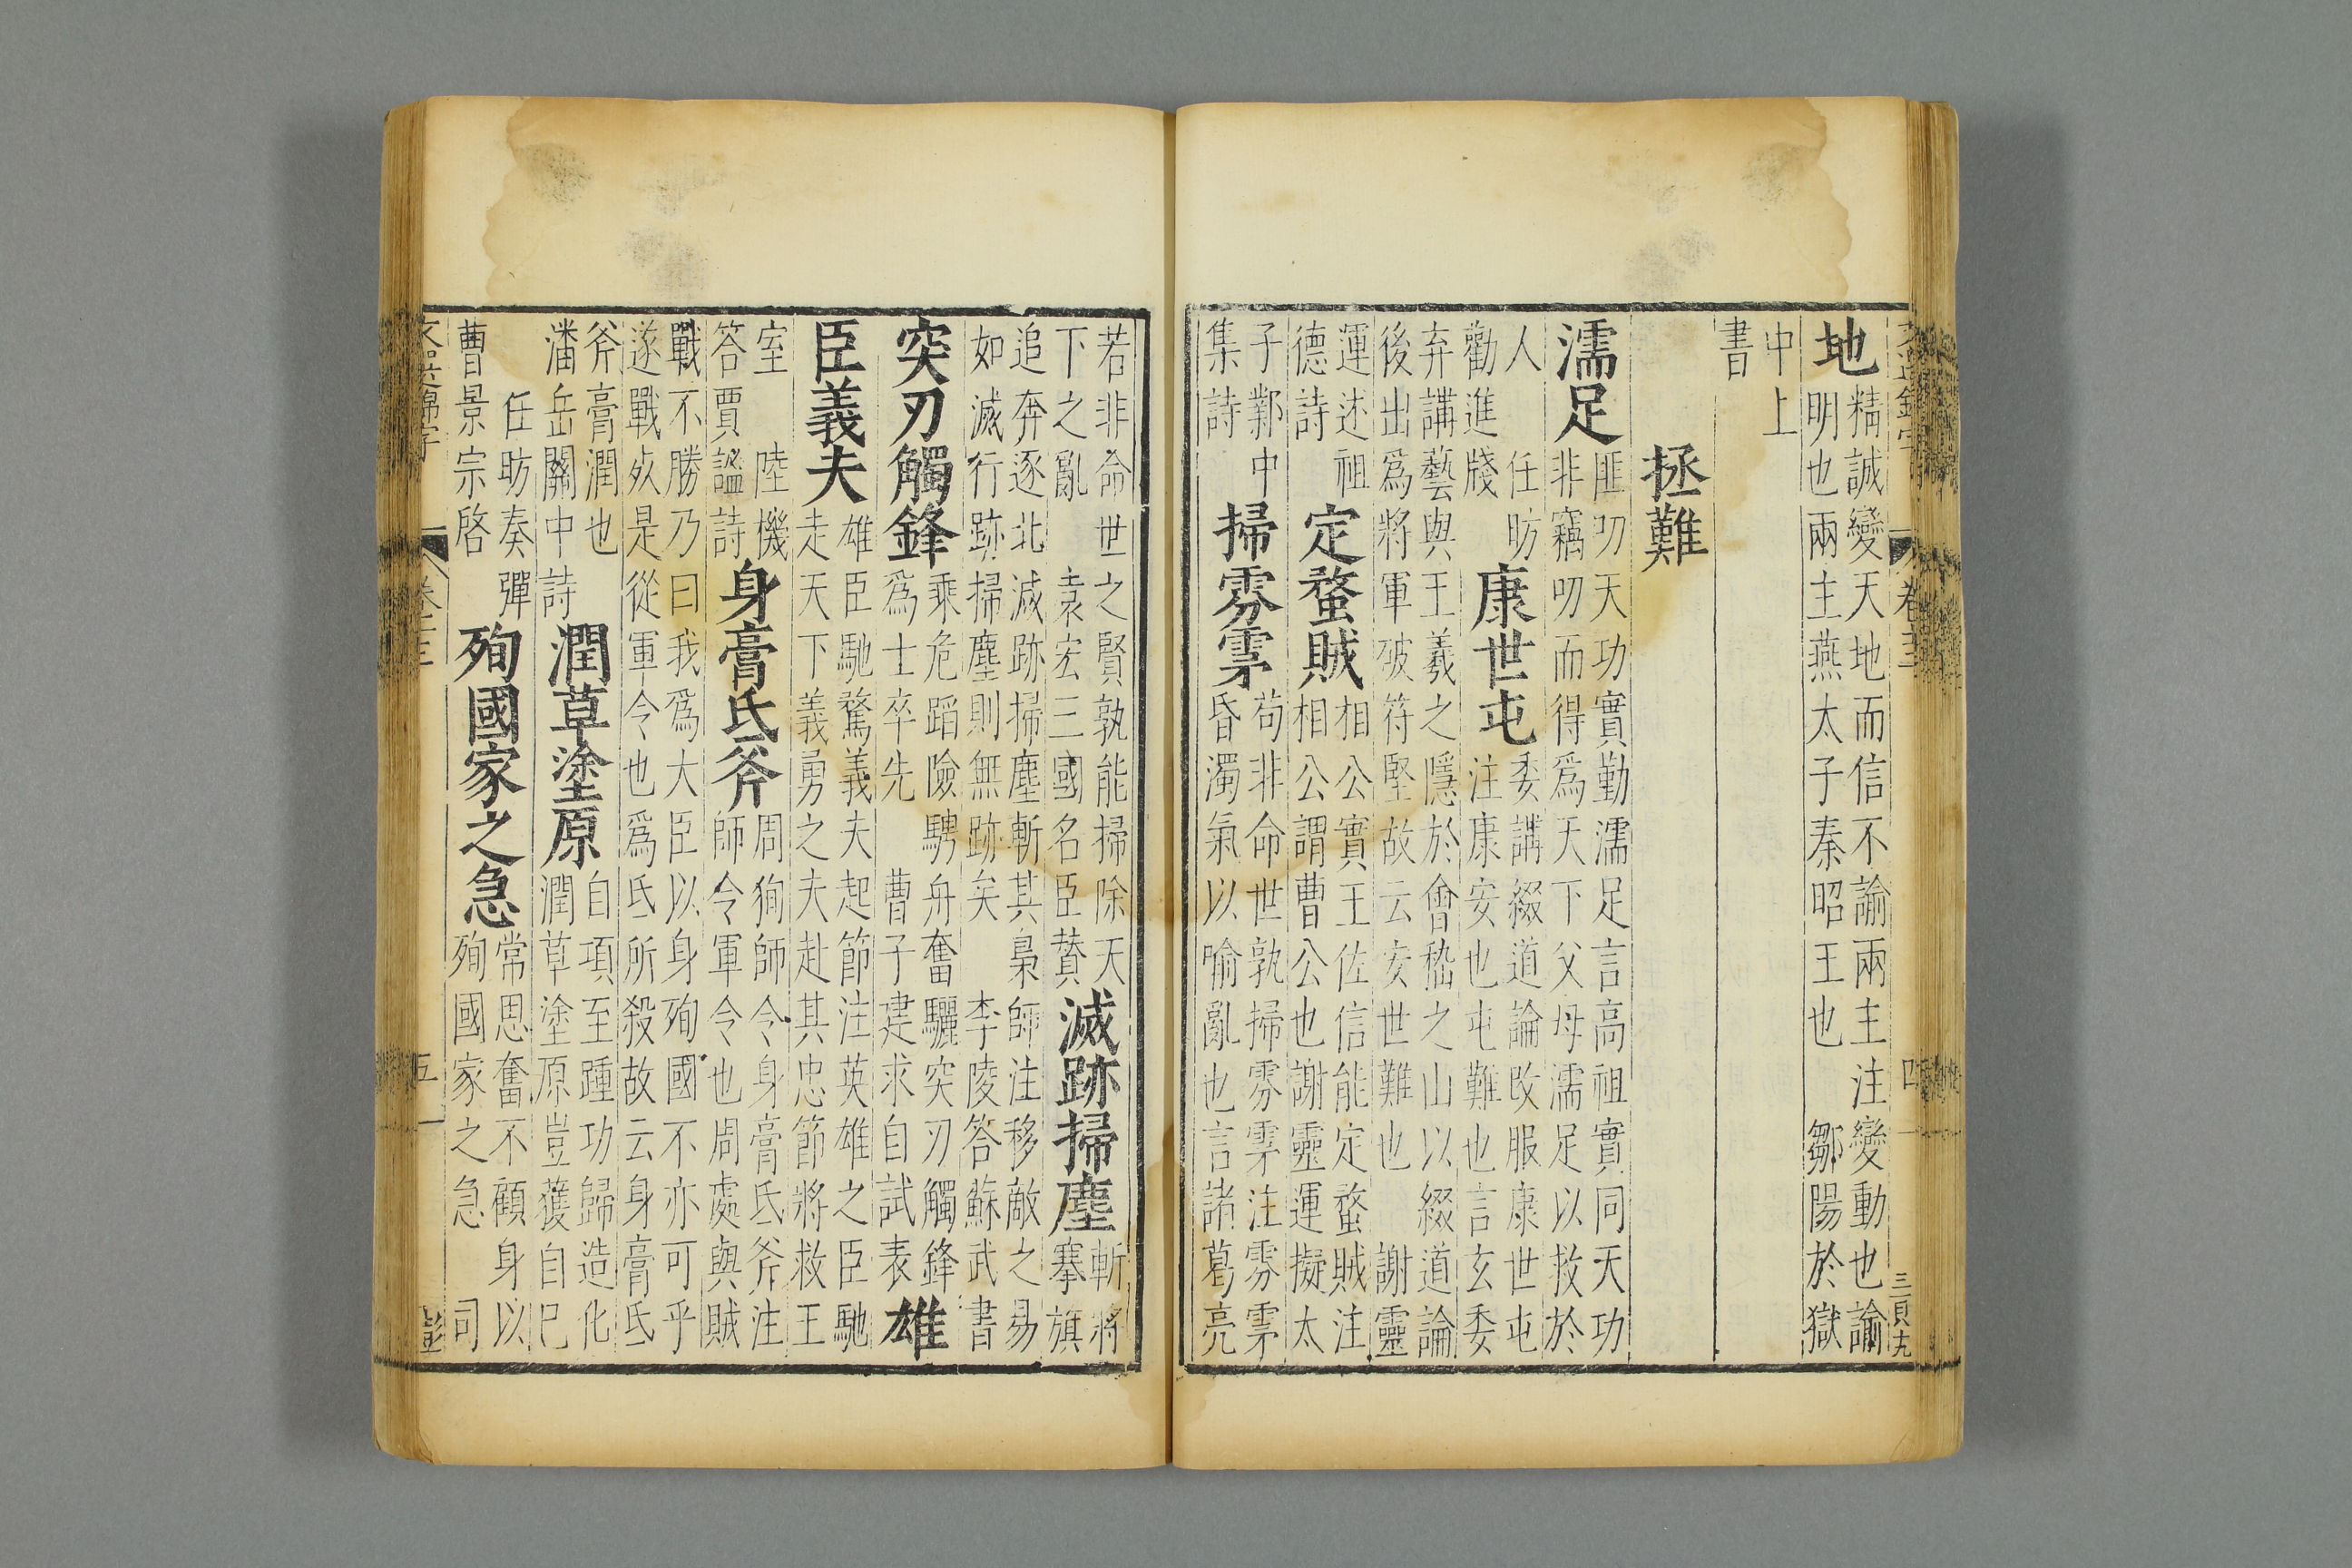 卷三
四
地
精誠變天地而信不諭兩主注變動也諭
明也兩主燕太子秦昭王也 鄒陽於獄
中上
書
拯難
濡足
匪叨天功實勤濡足言高祖實同天功
非竊叨而得爲天下父母濡足以救於
人 任昉
勸進牋
康世屯
委講綴道論改服康世屯
注康安也屯難也言玄委
弃講藝與王羲之隱於會嵇之山以綴道論
後出爲將軍破苻堅故云安世難也 謝靈
運述祖
德詩
定蝥賊
相公實王佐信能定蝥賊注
相公謂曹公也謝靈運擬太
子鄴中
集詩
掃雰雺
苟非命世孰掃雰雺注雰雺
昏濁氣以喻亂也言諸葛亮
若非命世之賢孰能掃除天
下之亂 袁宏三國名臣贊
滅跡掃塵
斬將
搴旗
追奔逐北滅跡掃塵斬其梟師注移敵之易
如滅行跡掃塵則無跡矣 李陵答蘇武書
突刃觸鋒
乘危蹈險騁舟奮驪突刃觸鋒
爲士卒先 曹子建求自試表
雄
臣義夫
雄臣馳騖義夫起節注英雄之臣馳
走天下義勇之夫赴其忠節將救王
室 陸機
答賈謐詩
身膏氐斧
周殉師令身膏氐斧注
師令軍令也周處與賊
戰不勝乃曰我爲大臣以身殉國不亦可乎
遂戰歿是從軍令也爲氐所殺故云身膏氐
斧膏潤也
潘岳關中詩
潤草塗原
自項至踵功歸造化
潤草塗原豈獲自已
任昉奏彈
曹景宗啓
殉國家之急
常思奮不顧身以
殉國家之急 司
五